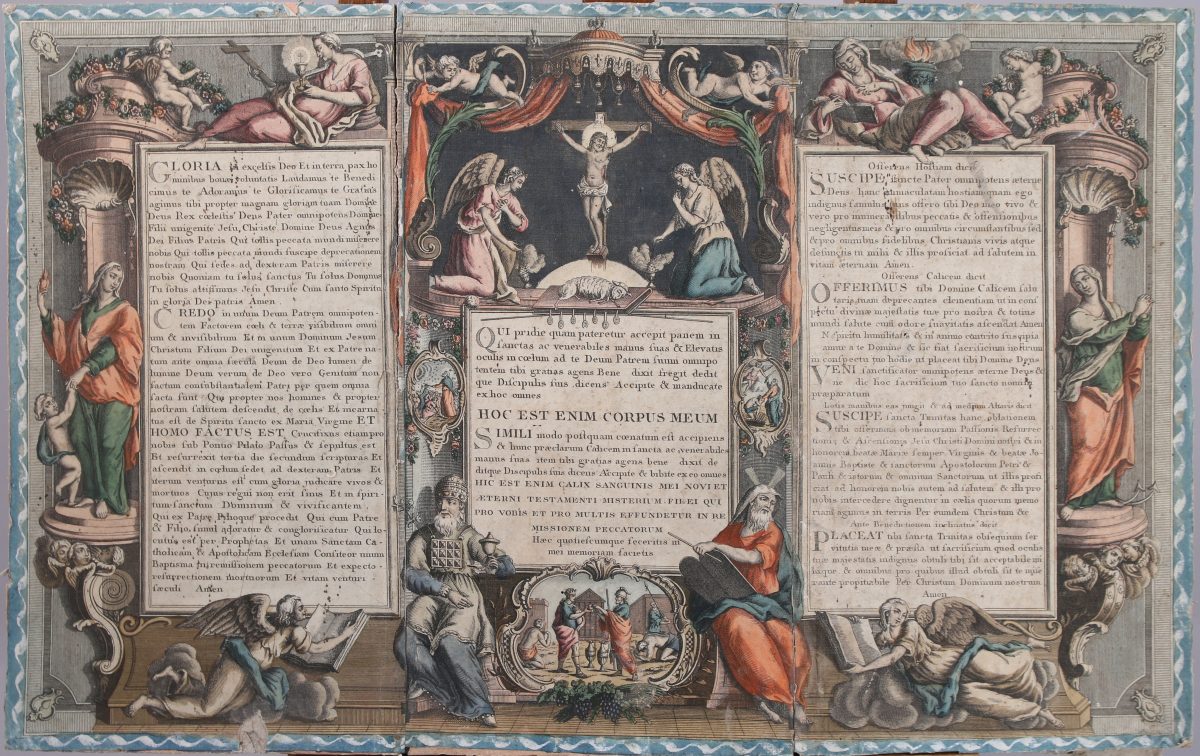 GLORIA in excelsis Deo Et in terra pax ho
minibus bonae voluntatis Laudamus te Benedi
cimus te Adoramus te Glorificamus te Gratias
agimus tibi propter magnam gloriam tuam Domine
Deus Rex coelestis Deus Pater omnipotens Domine
Filii unigenite Jesu Christe Domine Deus Agnus
Dei Filius Patris Qui tollis peccata mundi miserere
nobis Qui tollis peccata mundi suscipe deprecationem
nostram Qui sedes ad dexteram Patris miserere
nobis Quoniam tu solus sanctus Tu solus Dominus
Tu solus altissimus Jesu Christe Cum sancto Spiritu
in gloria Dei patris Amen .
CREDO in unum Deum Patrem omnipoten-
tem Factorem coeli & terrae visibilium omni
um & invisibilium Et in unum Dominum Jesum
Christum Filium Dei unigenitum Et ex Patre na-
tum ante omnia saecula Deum de Deo lumen de
lumine Deum verum de Deo vero Genitum non
factum consubstantialem Patri per quem omnia
facta sunt Qui propter nos homines & propter
nostram salutem descendit de coelis Et incarna
tus est de Spiritu sancto ex Maria Virgine ET
HOMO FACTUS EST Crucifixus etiam pro
nobis sub Pontio Pilato Passus & sepultus est
Et resurrexit tertia die secundum scripturas Et
ascendit in coelum sedet ad dexteram Patris Et
iterum venturus est cum gloria judicare vivos &
mortuos Cujus regni non erit finis Et in spiri-
tum sanctum Dominum & vivificantem
Qui ex Patre Filioque procedit Qui cum Patre
& Filio simul adoratur & conglorificatur Qui lo-
cutus est per Prophetas Et unam Sanctam Ca
tholicam & Apostolicam Ecclesiam Confiteor unum
Baptisma in remissionem peccatorum Et expecto
resurrectionem mortuorum Et vitam venturi
saeculi Amen
QUI pridie quam pateretur accepit panem in
sanctas ac venerabiles manus suas & Elevatis
oculis in coelum ad te Deum Patrem suum omnipo
tentem tibi gratias agens Bene dixit fregit dedit
que Discipulis suis dicens Accipite & manducate
ex hoc omnes
HOC EST ENIM CORPUS MEUM
SIMILI modo postquam coenatum est accipiens
& hunc praeclarum Calicem in sancta ac venerabiles
manus suas item tibi gratias agens bene dixit de
ditque Discipulis suis dicens Accipite & bibite ex eo omnes
HIC EST ENIM CALIX SANGUINIS MEI NOVI ET
AETERNI TESTAMENTI MISTERIUM FIDEI QUI
PRO VOBIS ET PRO MULTIS EFFUNDETUR IN RE
MISSIONEM PECCATORUM
Haec quotiescumque feceritis in
mei memoriam facietis
Offerens Hostiam dicit
SUSCIPE sancte Pater omnipotens aeterne
Deus hanc immaculatam hostiam quam ego
indignus famulus tuus offero tibi Deo meo vivo &
vero pro innumerabilibus peccatis & offensionibus
negligentiis meis & pro omnibus circumstantibus sed
& pro omnibus fidelibus Christianis vivis atque
defunctis ut mihi & illis proficiat ad salutem in
vitam aeternam Amen
Offerens Calicem dicit
OFFERIMUS tibi Domine Calicem salu
taris tuam deprecantes clementiam ut in cons
pectu divinae majestatis tuae pro nostra & totius
mundi salute cum odore suavitatis ascendat Amen
IN spiritu humilitatis & in animo contrito suscipia
mur a te Domine & sic fiat sacrificium nostrum
in conspectu tuo hodie ut placeat tibi Domine Deus
VENI sanctificator omnipotens aeterne Deus &
ne dic hoc sacrificium tuo sancto nomini
praeparatum
Lotis manibus eas jungit & ad medium Altaris dicit
SUSCIPE sancta Trinitas hanc oblationem
tibi offerimus ob memoriam Passionis Resurrec
tionis & Ascensionis Jesu Christi Domini nostri & in
honorem beatae Mariae semper Virginis & beatae Jo
annis Baptistae & sanctorum Apostolorum Petri &
Pauli & istorum & omnium Sanctorum ut illis profi
ciat ad honorem nobis autem ad salutem & illi pro
nobis intercedere dignentur in caelis quorum memo
riam agimus in terris Per eundem Christum &c
Ante Benedictionem inclinatus dicit
PLACEAT tibi sancta Trinitas obsequium ser
vitutis meae & praesta ut sacrificium quod oculis
tuae majestatis indignus obtuli tibi sit acceptabile mi
hique & omnibus pro quibus illud obtuli sit te mise
rante propitiabile Per Christum Dominum nostrum
Amen